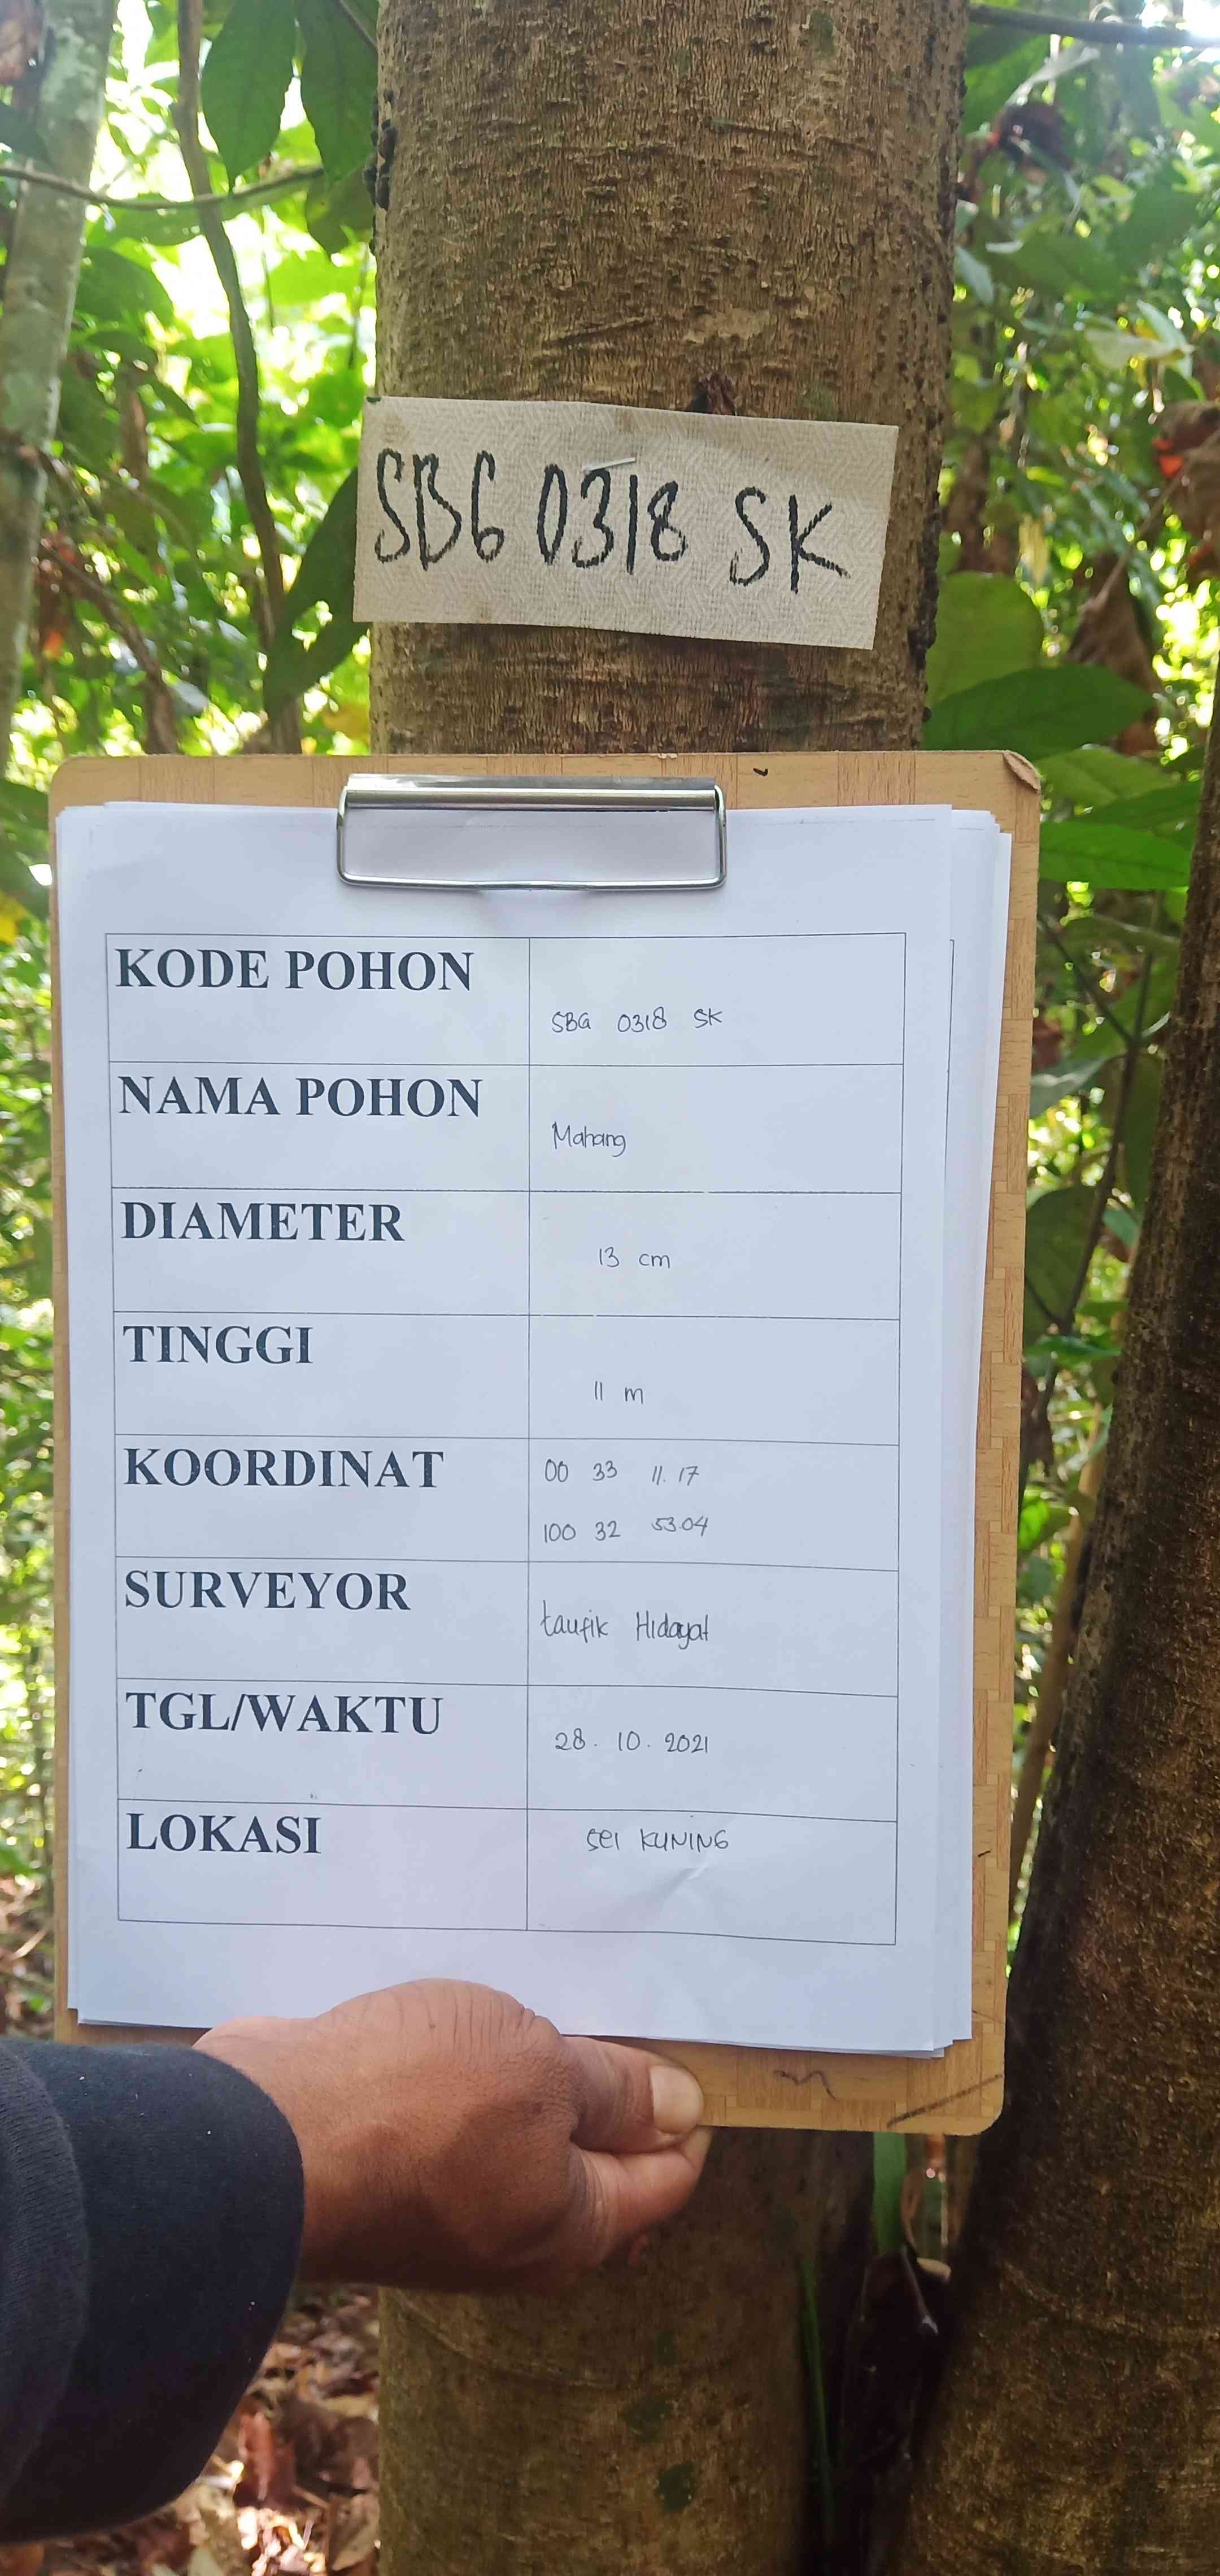 SBG 0318 SK
KODE POHON
SBG 0318 SK
NAMA POHON
Mahang
DIAMETER
13 cm
TINGGI
11 m
KOORDINAT
00 33 11.17
100 32 53.04
SURVEYOR
taufik Hidayat
TGL/WAKTU
28. 10. 2021
LOKASI
sei KUNING